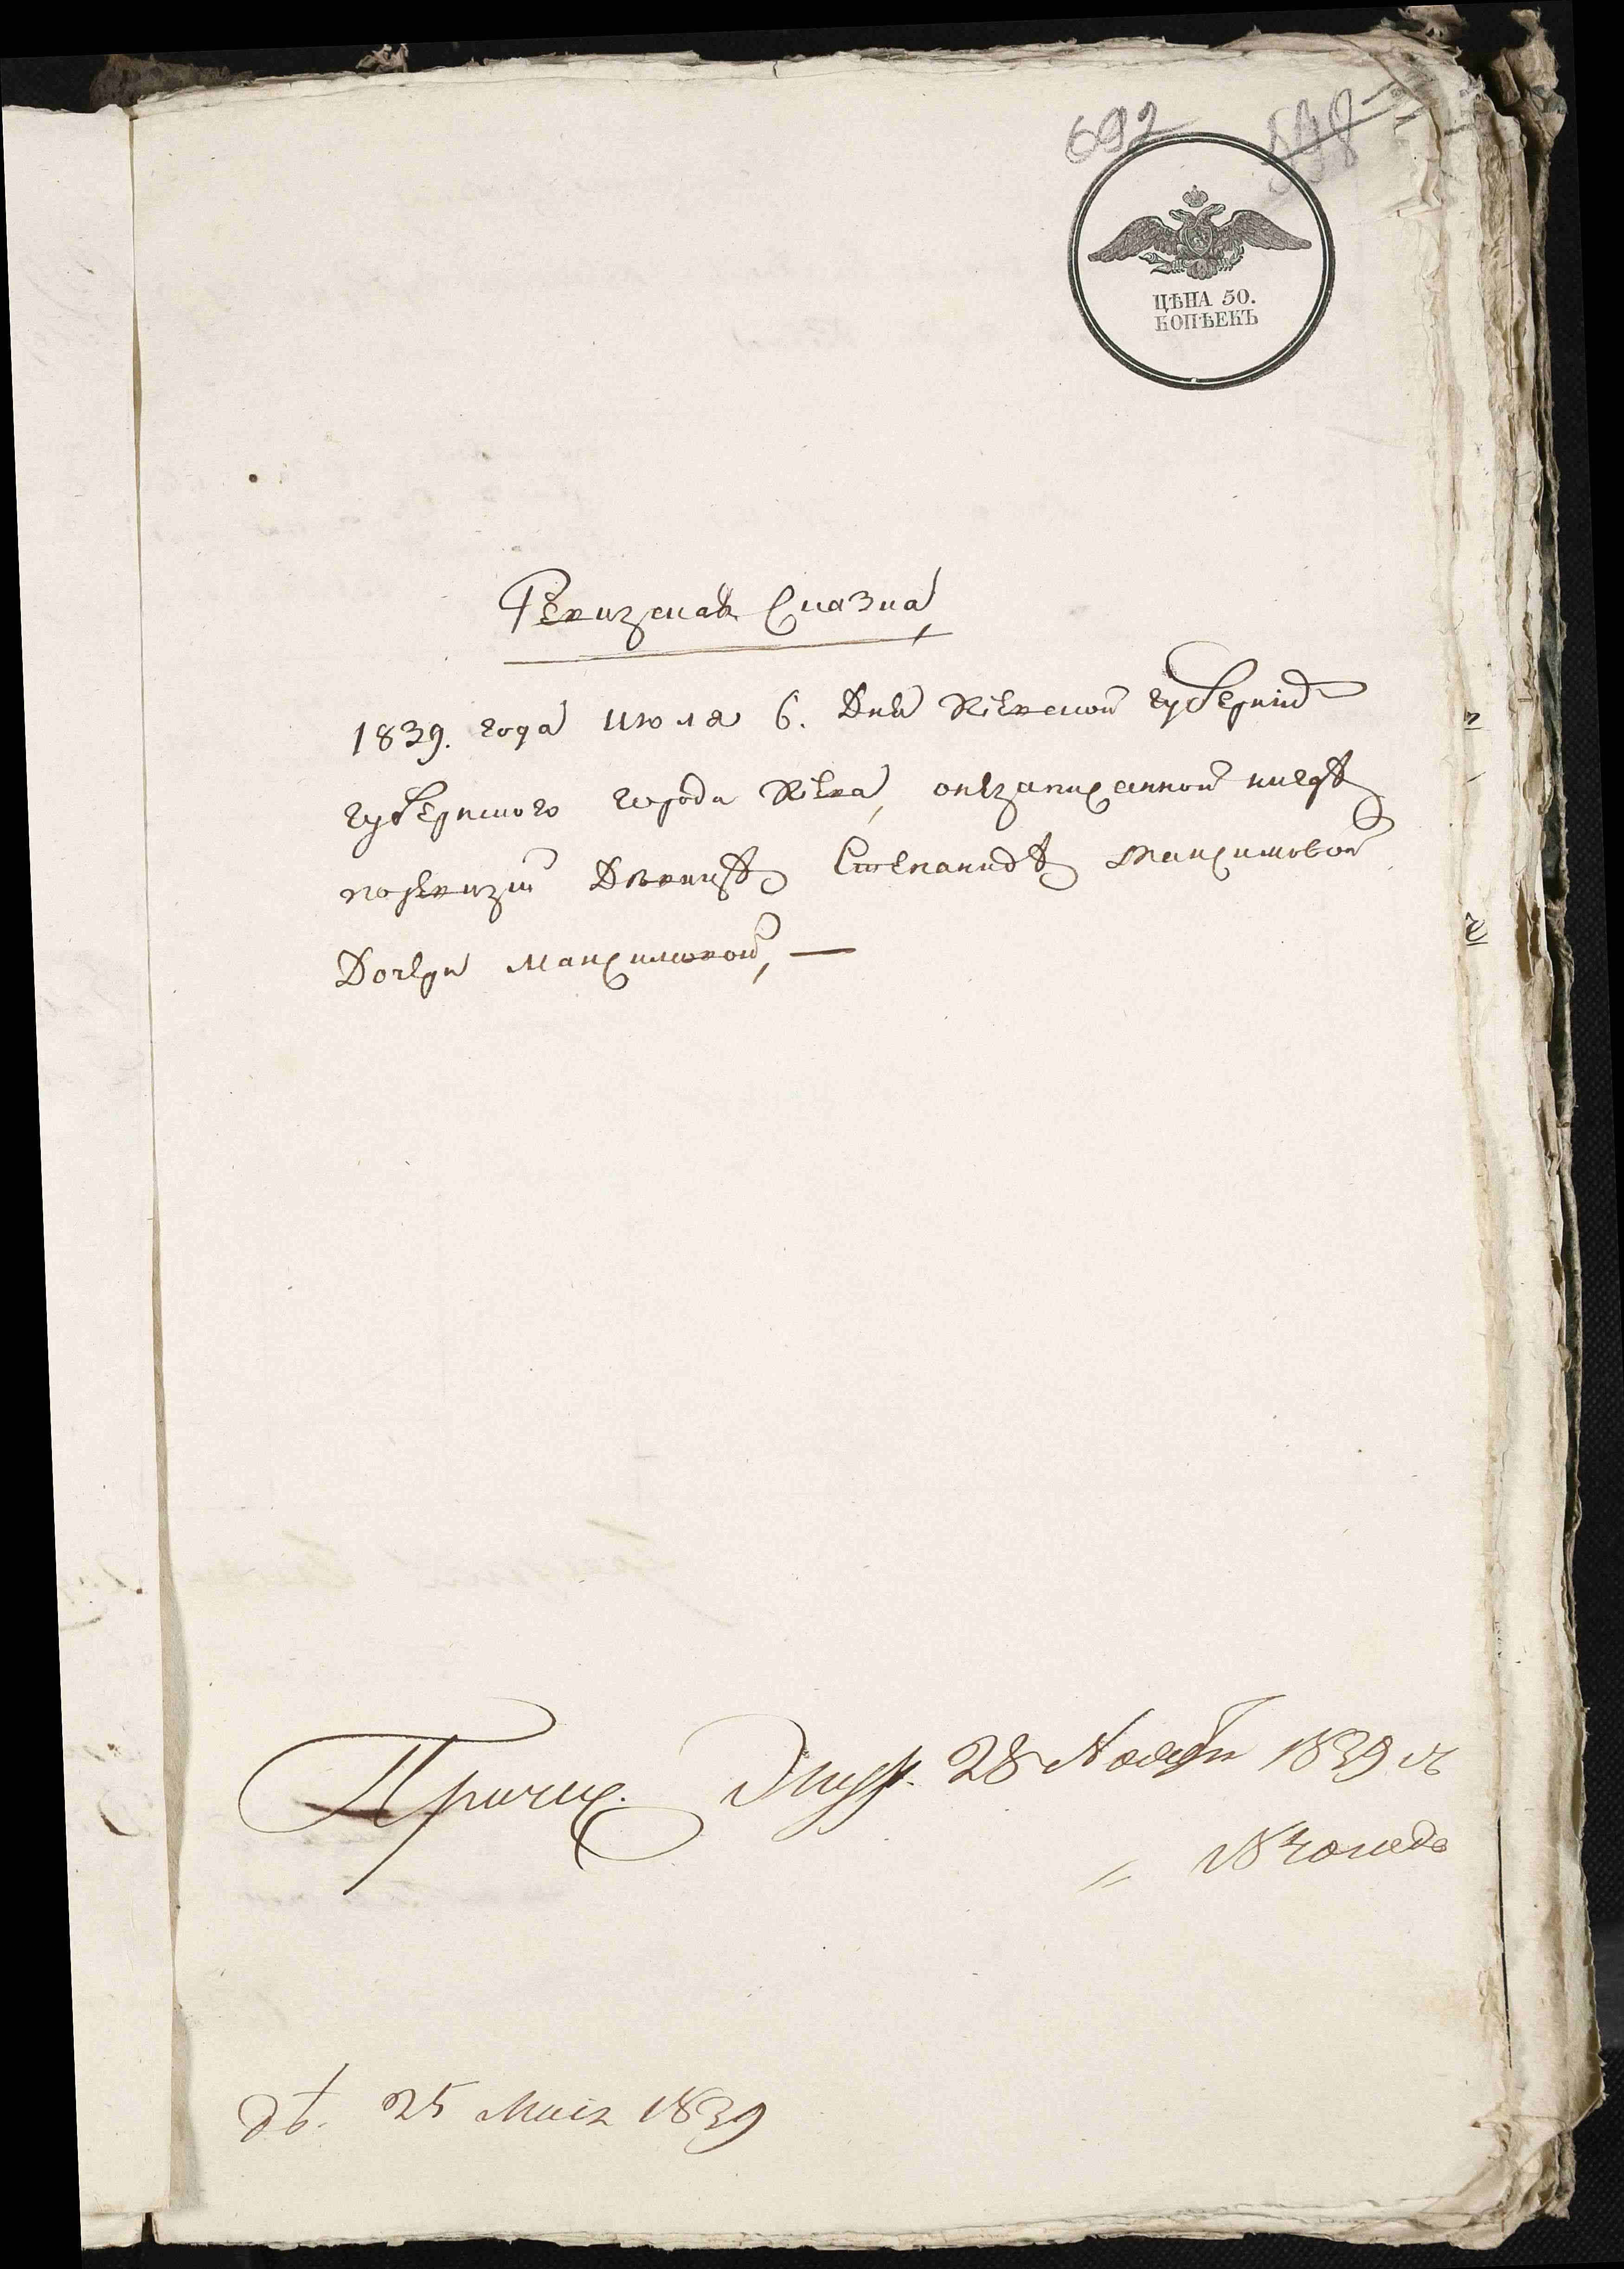 692
598
ЦѢНА 50.
КОПѢЕКЪ
Ревизская Сказка,
1839. года Июля 6. Дня Кіевской губерніи
губернского города Кіева, онезаписанной нигдѣ
поревизіи Дѣвицѣ Степанидѣ Максимовой
Дочери Максимовой, —
Причис. Энвр. 28 Ноября 1839
дѣ. 25 Маія 1839